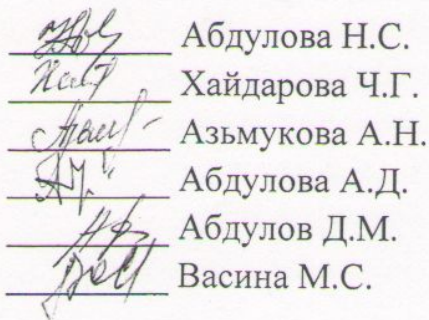 Абдулова Н.С.
Хайдарова Ч.Г.
Азьмукова А.Н.
Абдулова А.Д.
Абдулов Д.М.
Васина М.С.